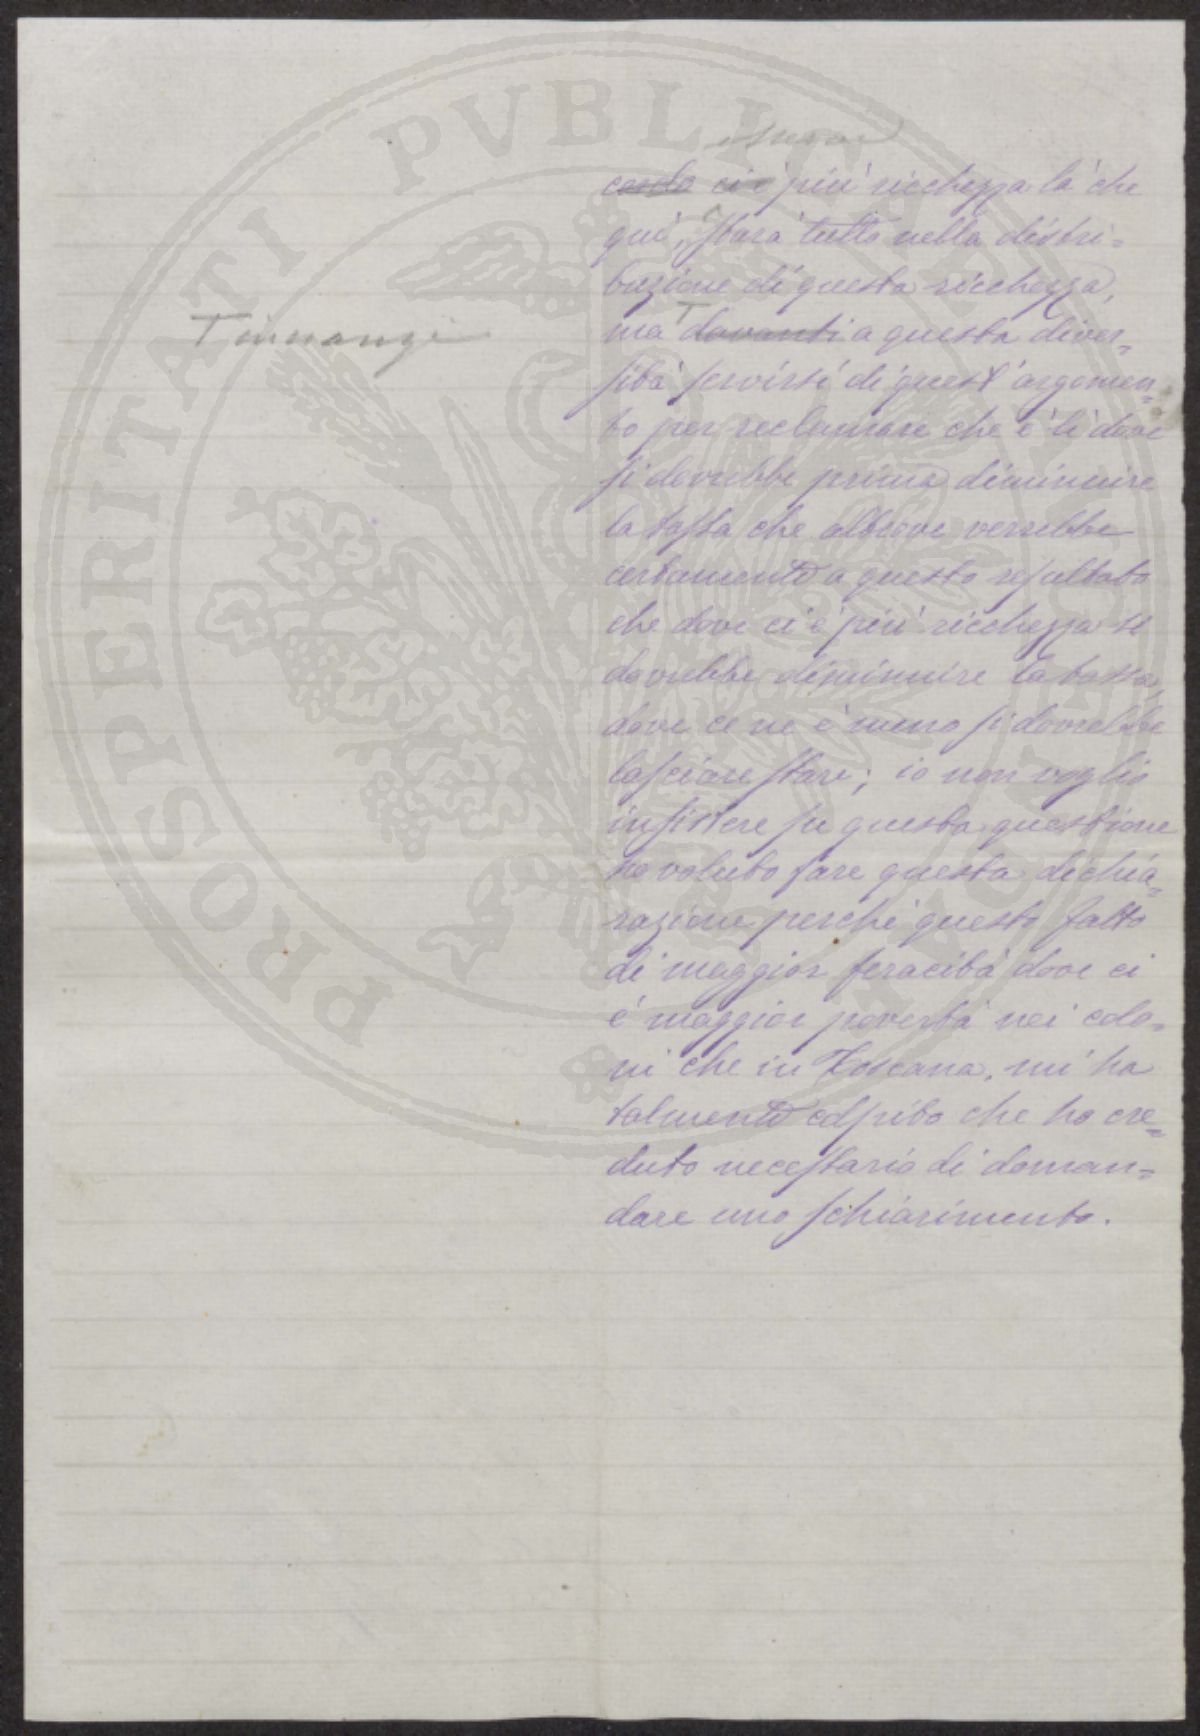 PROSPERITATI PVBLICAE
cordo ci è più ricchezza là che
qui, starà tutto nella distri=
buzione di questa ricchezza,
T innanzi
ma T davanti a questa diver=
sità servirsi di quest'argomen=
to per reclamare che è lì dove
si dovrebbe prima diminuire
la tassa che altrove verrebbe
certamente a questo resultato
che dove ci è più ricchezza si
dovrebbe diminuire la tassa,
dove ce ne è meno si dovrebbe
lasciare stare; io non voglio
insistere su questa questione
ho voluto fare questa dichia=
razione perché questo fatto
di maggior feracità dove ci
è maggior povertà nei colo=
ni che in Toscana, mi ha
talmente colpito che ho cre=
duto necessario di doman=
dare uno schiarimento.